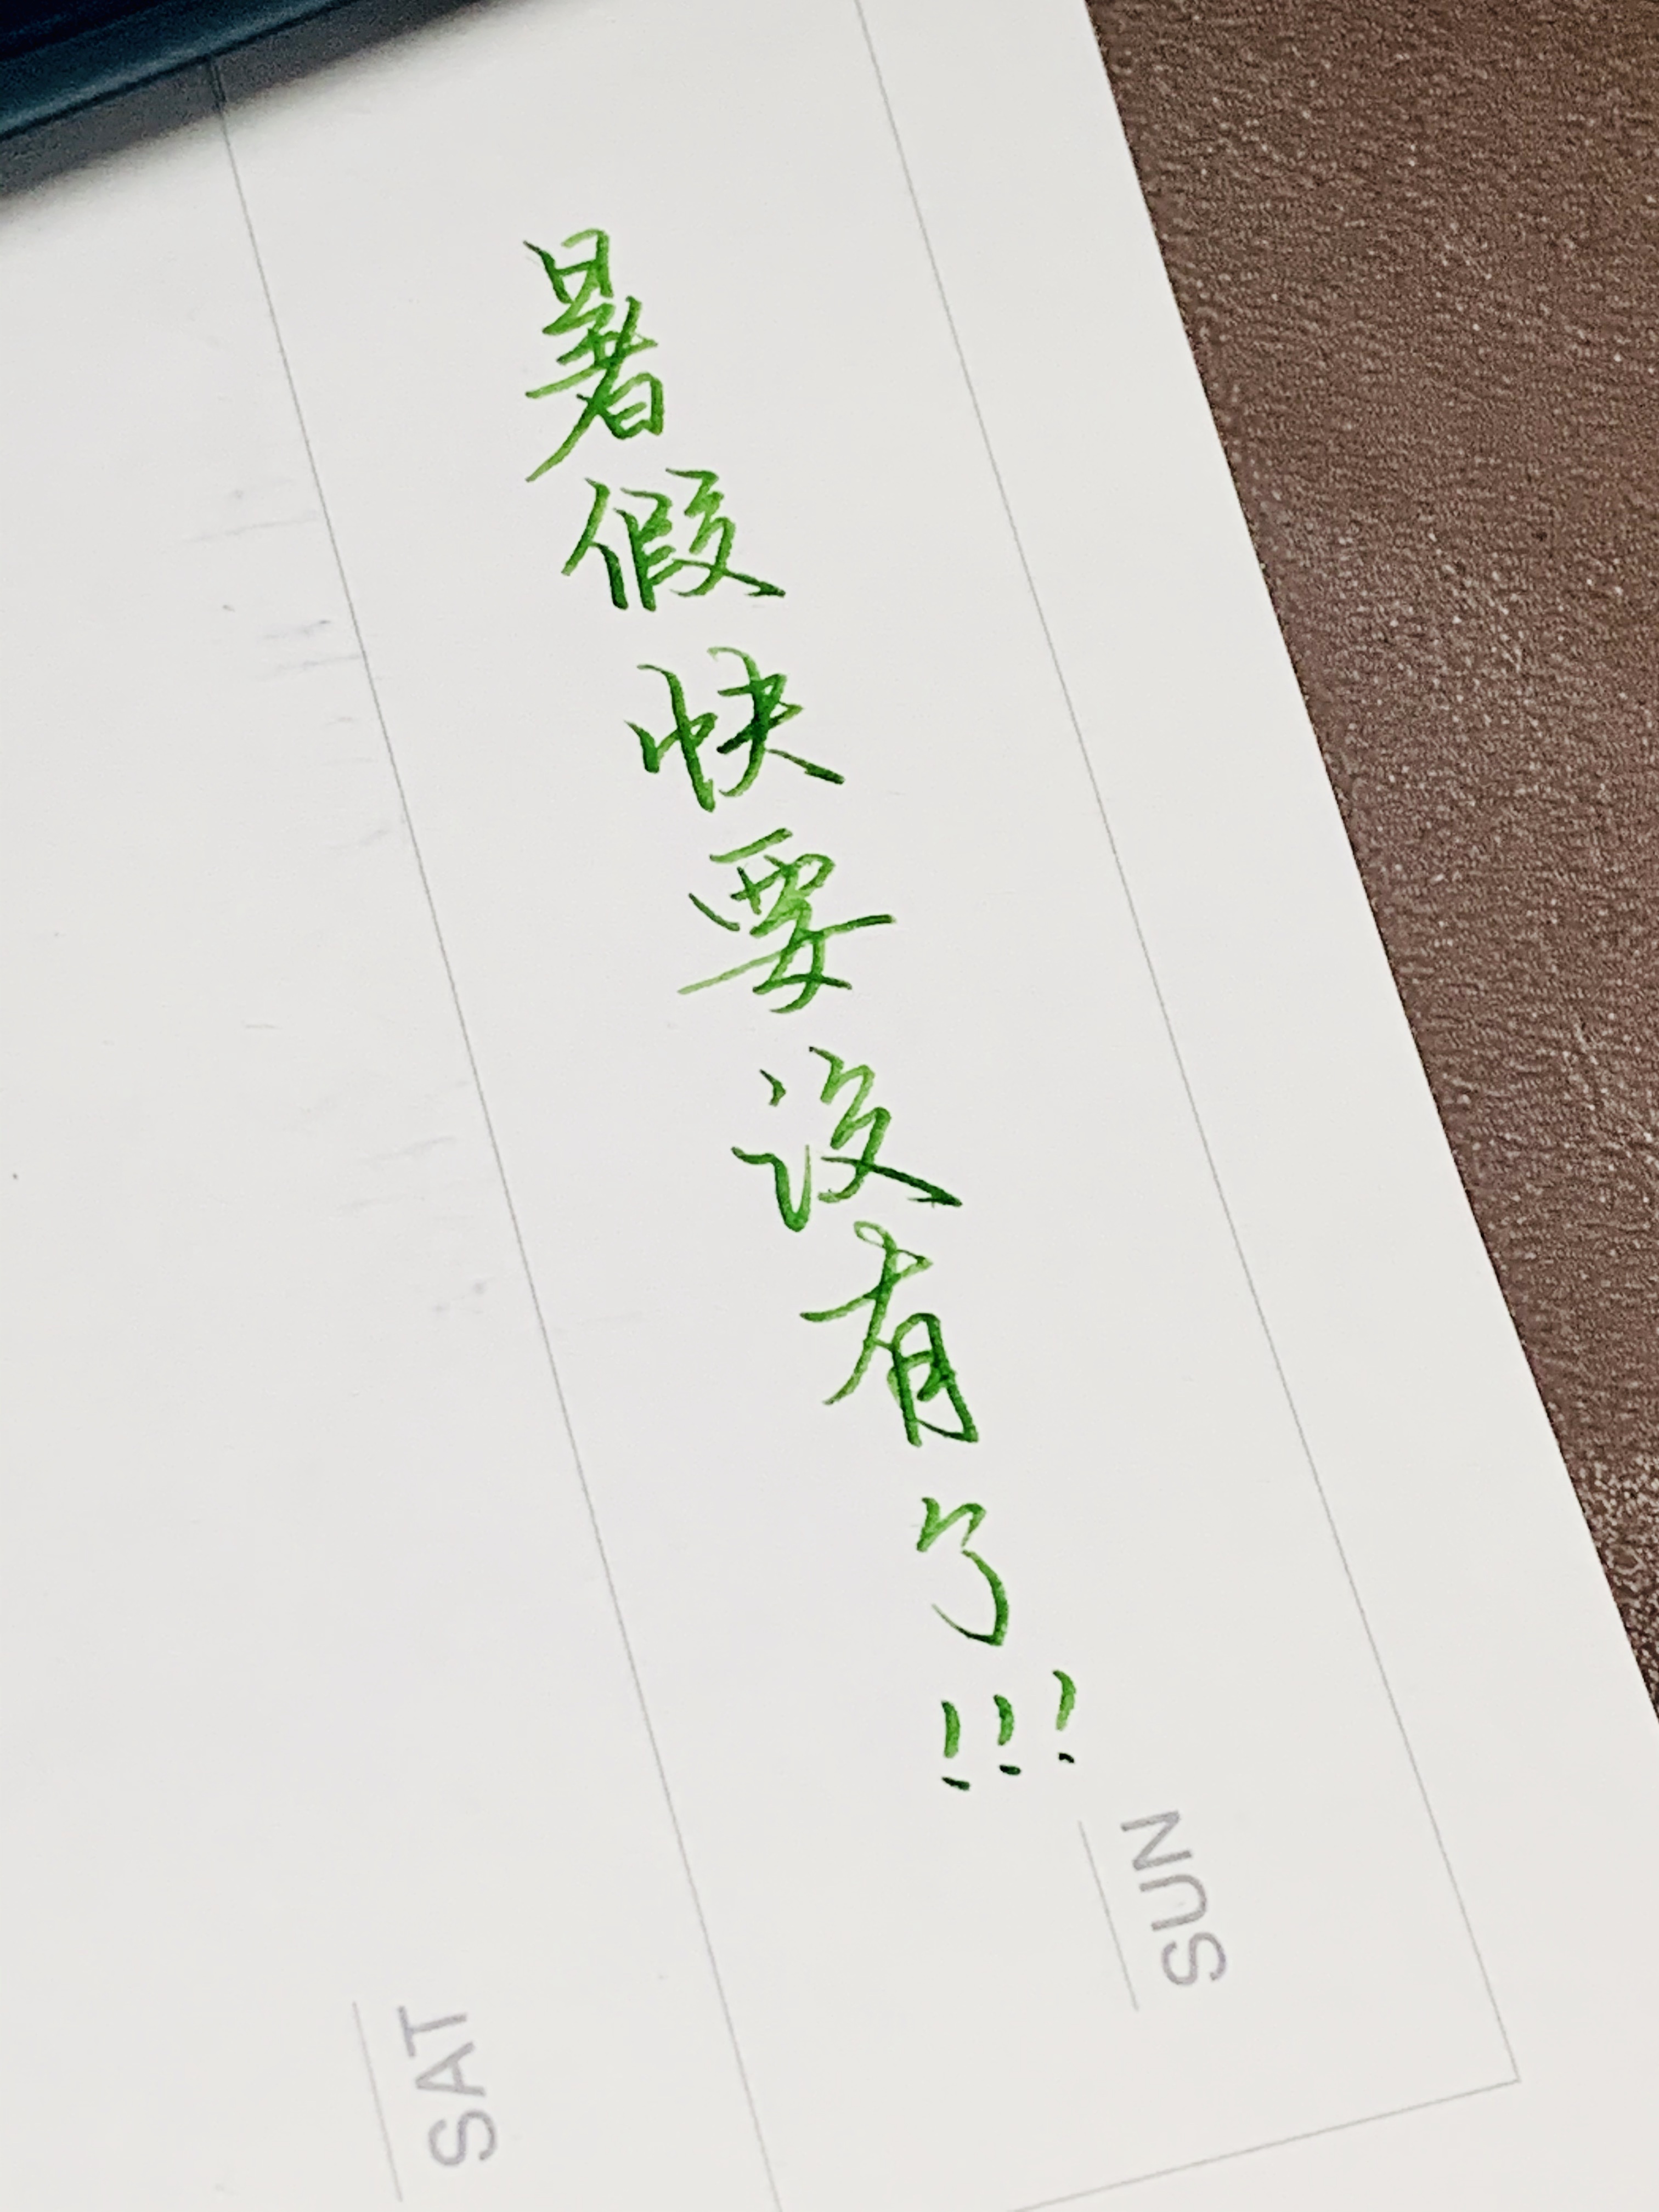 暑假快要没有了!!!
SUN
SAT